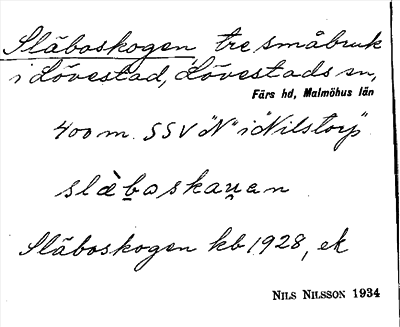 Släboskogen tre småbruk
i Lövestad, Lövestads sn,
Färs hd, Malmöhus län
400 m. SSV "N" i "Nilstorp"
slàb̲oskau̯an
Släboskogen kb 1928, ek
NILS NILSSON 1934